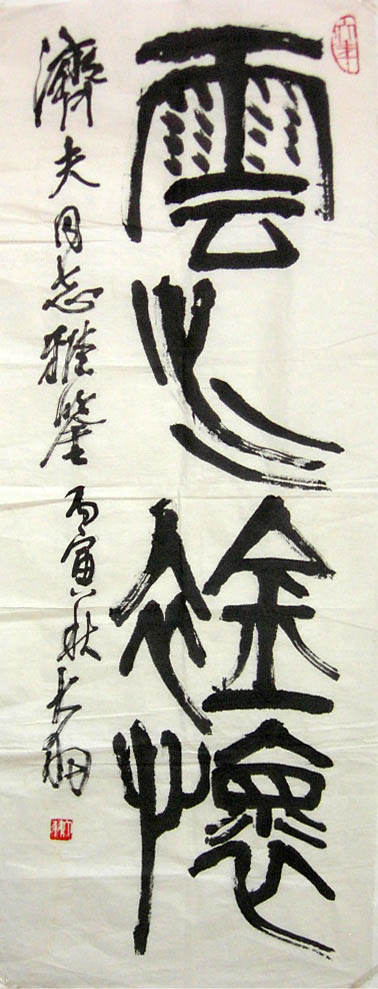 雲心䘳懷
濟夫同志雅鑒 丙寅秋大羽